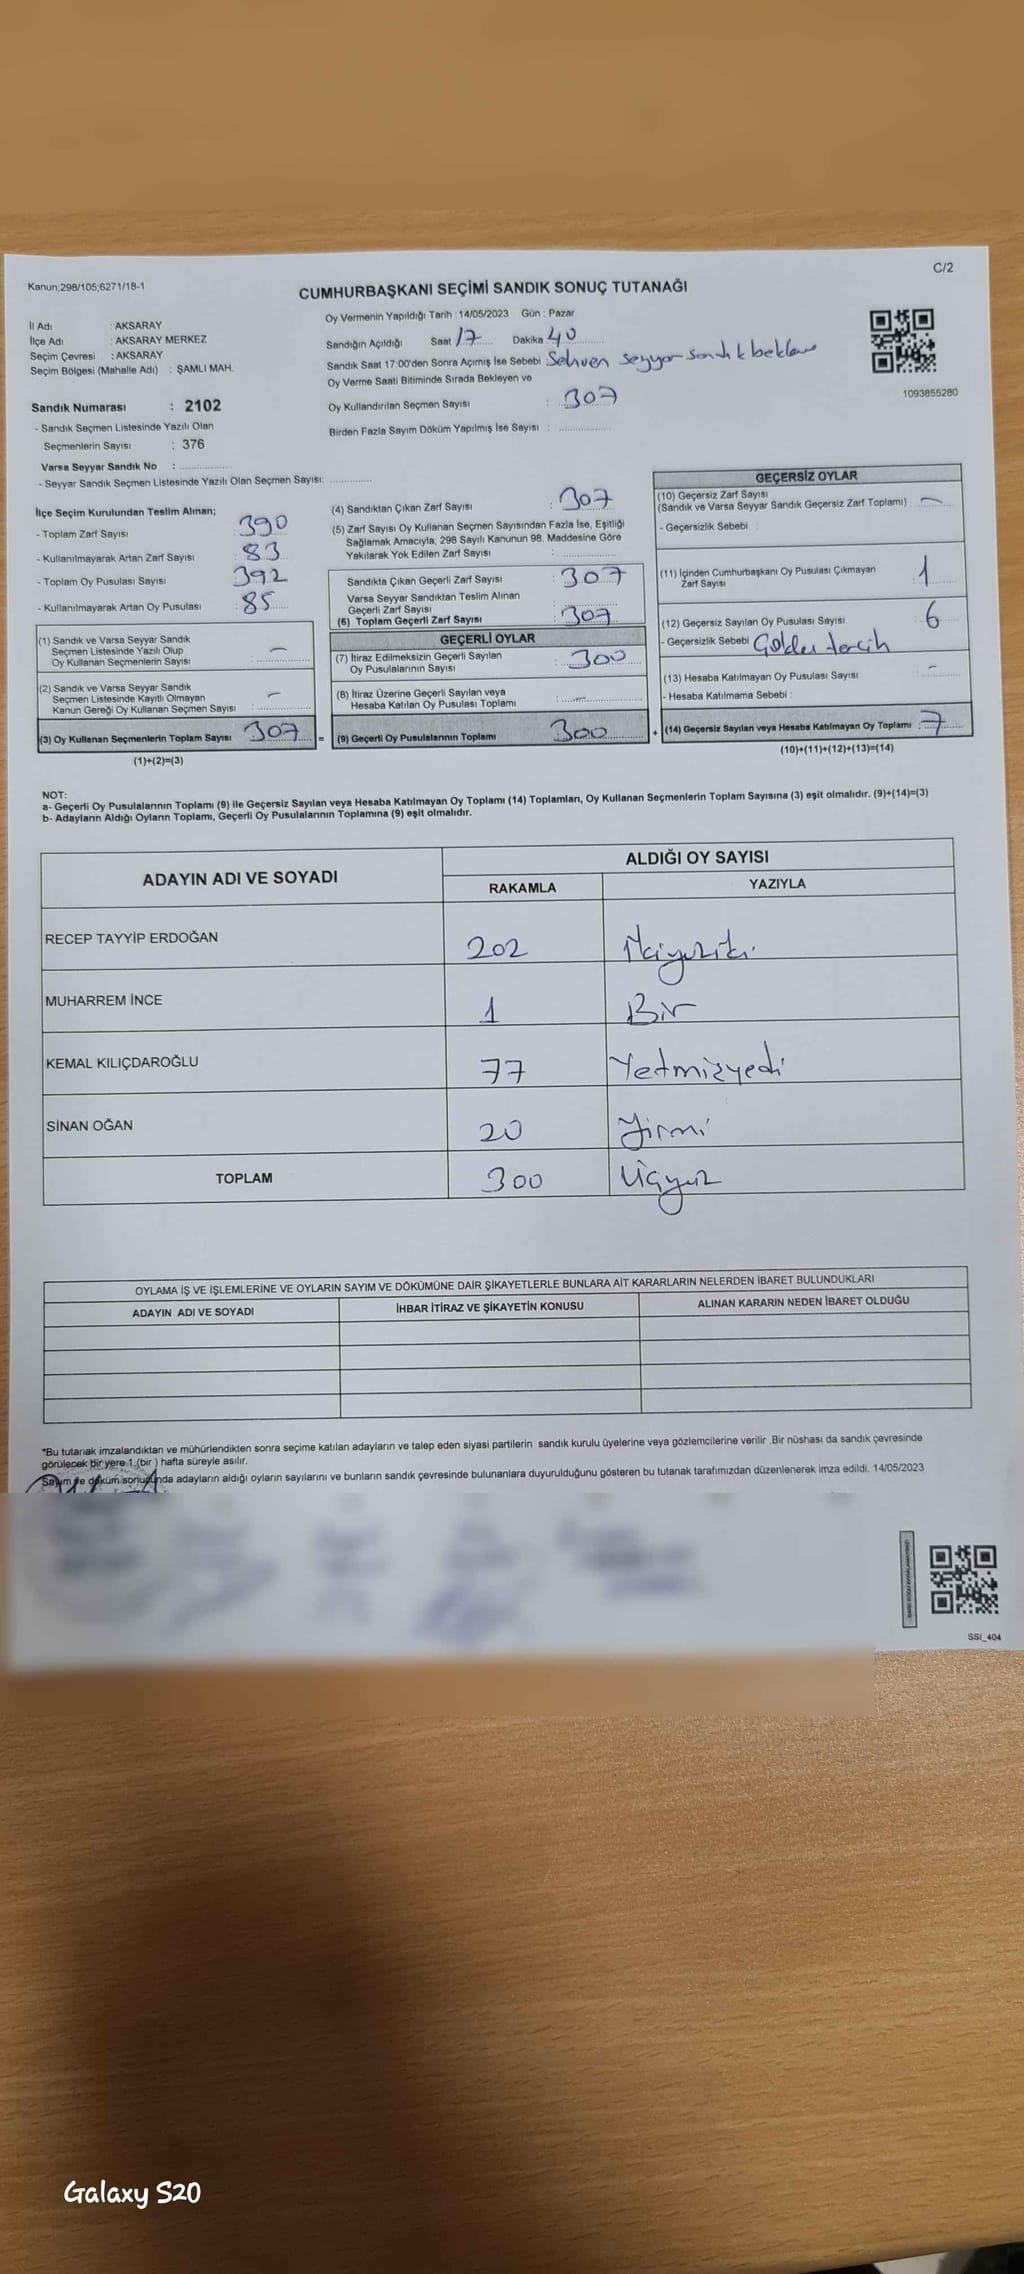 C/2
Kanun;298/105;6271/18-1
CUMHURBAŞKANI SEÇİMİ SANDIK SONUÇ TUTANAĞI
İl Adı : AKSARAY
İlçe Adı : AKSARAY MERKEZ
Seçim Çevresi : AKSARAY
Seçim Bölgesi (Mahalle Adı) : ŞAMLI MAH.
Sandık Numarası : 2102
- Sandık Seçmen Listesinde Yazılı Olan
Seçmenlerin Sayısı : 376
Varsa Seyyar Sandık No :
- Seyyar Sandık Seçmen Listesinde Yazılı Olan Seçmen Sayısı:
Oy Vermenin Yapıldığı Tarih : 14/05/2023 Gün : Pazar
Sandığın Açıldığı Saat 17 Dakika 40
Sandık Saat 17:00'den Sonra Açımış İse Sebebi Sehven seyyar sandık
Oy Verme Saati Bitiminde Sırada Bekleyen ve
Oy Kullandırılan Seçmen Sayısı : 307
Birden Fazla Sayım Döküm Yapılmış İse Sayısı :
1093855280
İlçe Seçim Kurulundan Teslim Alınan;
- Toplam Zarf Sayısı : 390
- Kullanılmayarak Artan Zarf Sayısı : 83
- Toplam Oy Pusulası Sayısı : 392
- Kullanılmayarak Artan Oy Pusulası : 85
(1) Sandık ve Varsa Seyyar Sandık
Seçmen Listesinde Yazılı Olup
Oy Kullanan Seçmenlerin Sayısı : -
(2) Sandık ve Varsa Seyyar Sandık
Seçmen Listesinde Kayıtlı Olmayan
Kanun Gereği Oy Kullanan Seçmen Sayısı : -
(3) Oy Kullanan Seçmenlerin Toplam Sayısı : 307 =
(1)+(2)=(3)
(4) Sandıktan Çıkan Zarf Sayısı : 307
(5) Zarf Sayısı Oy Kullanan Seçmen Sayısından Fazla İse, Eşitliği
Sağlamak Amacıyla, 298 Sayılı Kanunun 98. Maddesine Göre
Yakılarak Yok Edilen Zarf Sayısı :
Sandıkta Çıkan Geçerli Zarf Sayısı : 307
Varsa Seyyar Sandıktan Teslim Alınan
Geçerli Zarf Sayısı :
(6) Toplam Geçerli Zarf Sayısı : 307
GEÇERLİ OYLAR
(7) İtiraz Edilmeksizin Geçerli Sayılan
Oy Pusulalarının Sayısı : 300
(8) İtiraz Üzerine Geçerli Sayılan veya
Hesaba Katılan Oy Pusulası Toplamı : -
(9) Geçerli Oy Pusulalarının Toplamı : 300 +
GEÇERSİZ OYLAR
(10) Geçersiz Zarf Sayısı
(Sandık ve Varsa Seyyar Sandık Geçersiz Zarf Toplamı) : -
- Geçersizlik Sebebi :
(11) İçinden Cumhurbaşkanı Oy Pusulası Çıkmayan
Zarf Sayısı : 1
(12) Geçersiz Sayılan Oy Pusulası Sayısı : 6
- Geçersizlik Sebebi tercih
(13) Hesaba Katılmayan Oy Pusulası Sayısı : -
- Hesaba Katılmama Sebebi :
(14) Geçersiz Sayılan veya Hesaba Katılmayan Oy Toplamı : 7
(10)+(11)+(12)+(13)=(14)
NOT:
a- Geçerli Oy Pusulalarının Toplamı (9) ile Geçersiz Sayılan veya Hesaba Katılmayan Oy Toplamı (14) Toplamları, Oy Kullanan Seçmenlerin Toplam Sayısına (3) eşit olmalıdır. (9)+(14)=(3)
b- Adayların Aldığı Oyların Toplamı, Geçerli Oy Pusulalarının Toplamına (9) eşit olmalıdır.
ADAYIN ADI VE SOYADI ALDIĞI OY SAYISI
RAKAMLA YAZIYLA
RECEP TAYYİP ERDOĞAN 202 İkiyüziki
MUHARREM İNCE 1 Bir
KEMAL KILIÇDAROĞLU 77 Yetmişyedi
SİNAN OĞAN 20 Yirmi
TOPLAM 300 Üçyüz
OYLAMA İŞ VE İŞLEMLERİNE VE OYLARIN SAYIM VE DÖKÜMÜNE DAİR ŞİKAYETLERLE BUNLARA AİT KARARLARIN NELERDEN İBARET BULUNDUKLARI
ADAYIN ADI VE SOYADI İHBAR İTİRAZ VE ŞİKAYETİN KONUSU ALINAN KARARIN NEDEN İBARET OLDUĞU
*Bu tutanak imzalandıktan ve mühürlendikten sonra seçime katılan adayların ve talep eden siyasi partilerin sandık kurulu üyelerine veya gözlemcilerine verilir .Bir nüshası da sandık çevresinde
görülecek bir yere 1 (bir ) hafta süreyle asılır.
Sayım ve döküm sonucunda adayların aldığı oyların sayılarını ve bunların sandık çevresinde bulunanlara duyurulduğunu gösteren bu tutanak tarafımızdan düzenlenerek imza edildi. 14/05/2023
SSI_404
Galaxy S20